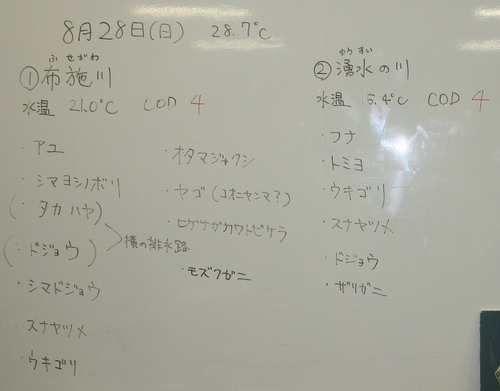 8月28日(日) 28.7℃
ふせがわ
①布施川
水温 21.0℃ COD 4
・アユ
・シマヨシノボリ
(・タカハヤ)
(・ドジョウ) 横の排水路
・シマドジョウ
・スナヤツメ
・ウキゴリ
・オタマジャクシ
・ヤゴ(コオニヤンマ?)
・ヒゲナガカワトビケラ
・モズクガニ
ゆうすい
②湧水の川
水温 15.4℃ COD 4
・フナ
・トミヨ
・ウキゴリ
・スナヤツメ
・ドジョウ
・ザリガニ